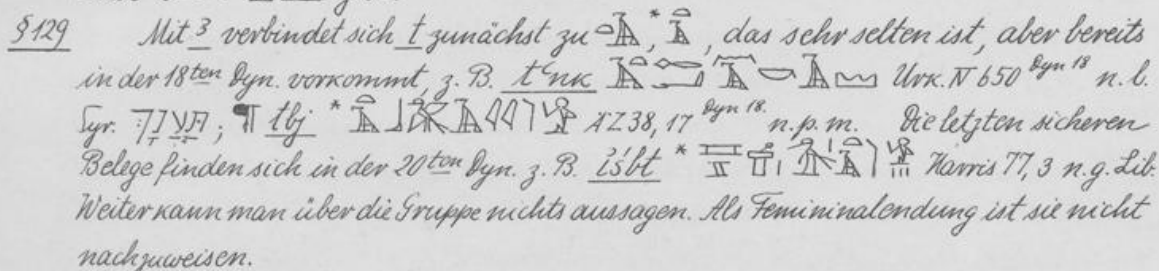 §129 Mit ꜣ verbindet sich t zunächst zu , * , das sehr selten ist, aber bereits
in der 18ten Dyn. vorkommt, z. B. tꜥnk Urk. IV 650 Dyn 18 n. l.
Syr. ; ¶ tbj * ÄZ 38, 17 Dyn 18. n. p. m. Die letzten sicheren
Belege finden sich in der 20ten Dyn. z. B. i҆śbt * Harris 77, 3 n. g. Lib.
Weiter kann man über die Gruppe nichts aussagen. Als Femininalendung ist sie nicht
nachzuweisen.